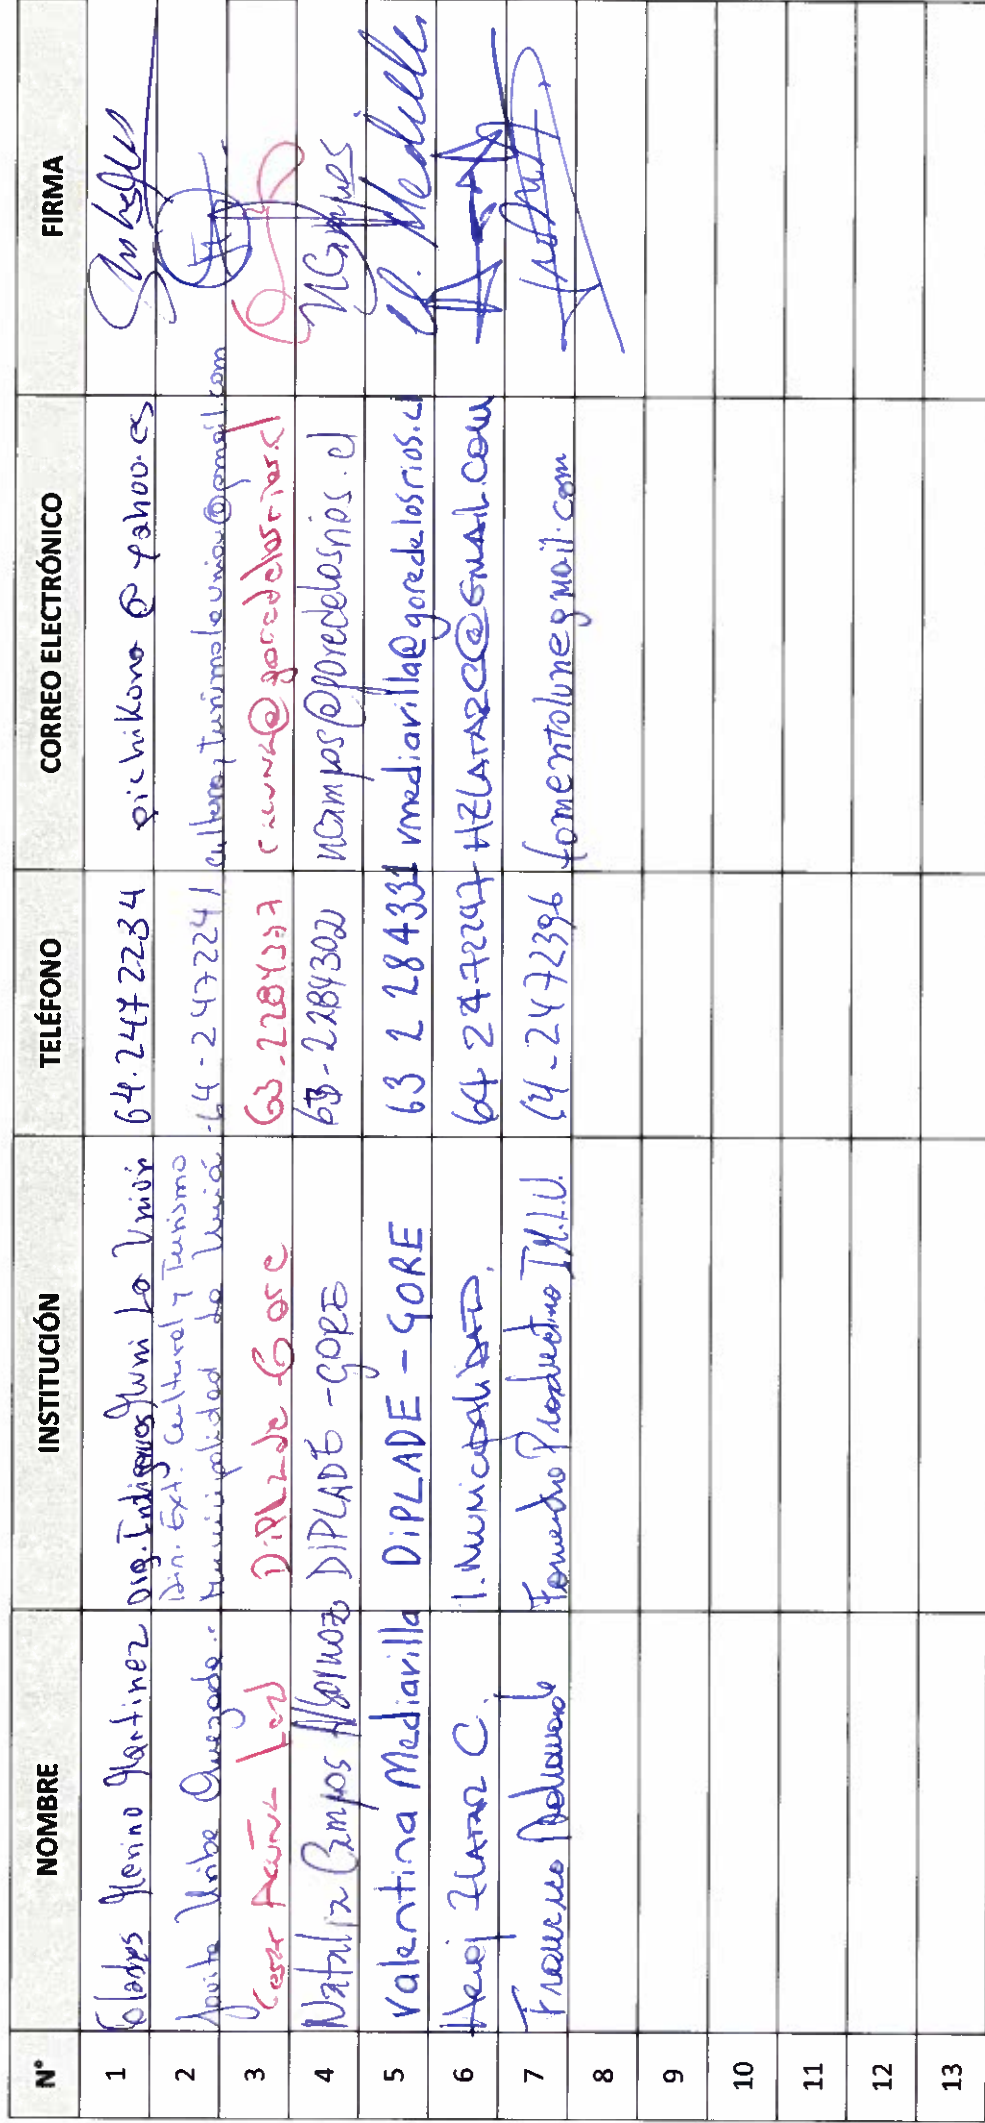 N° NOMBRE INSTITUCIÓN TELÉFONO CORREO ELECTRÓNICO FIRMA
1 Gladys Merino Martinez Org. Indigenas Muni La Unión 64.2472234 pichikona@yahoo.es
Din. Ext. Cultural y Turismo
2 Jovita Uribe Quezada Municipalidad La Unió 64-2472241 @gmail.com
3 Cesar Acuña Leal DiPLade Gore 63-2284337 cacuna@goredelosrios.cl
4 Natalia Campos Albornoz DIPLADE-GORE 63-2284302 ncampos@goredelosrios.cl NCampos
5 Valentina Mediavilla DiPLADE-GORE 63 2 284331 vmediavilla@goredelosrios.cl V. Mediavilla
6 ZLATAR C. I. MUNICIPALIDAD. 64 2472247 HZLATARC@GMAIL.COM
7 Francisco Fomento Productivo I.M.L.U. 64-2472396 fomentolunegmail.com
8
9
10
11
12
13